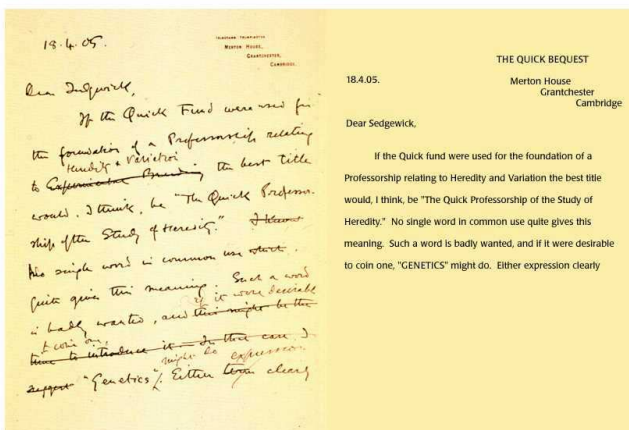 18.4.05.
MERTON HOUSE,
GRANTCHESTER,
CAMBRIDGE.
Dear Sedgwick,
If the Quick Fund were used for
the foundation of a Professorship relating
Heredity & Variation
to Experimental Breeding the best title
would, I think, be "The Quick Professor-
ship of the Study of Heredity." I know
No single word in common use
quite gives this meaning. Such a word
if it were desirable
is badly wanted, and this might be the
to coin one,
time to introduce it. In that case I
might be expression
suggest "Genetics". Either term clearly
THE QUICK BEQUEST
18.4.05.
Merton House
Grantchester
Cambridge
Dear Sedgewick,
If the Quick fund were used for the foundation of a
Professorship relating to Heredity and Variation the best title
would, I think, be "The Quick Professorship of the Study of
Heredity." No single word in common use quite gives this
meaning. Such a word is badly wanted, and if it were desirable
to coin one, "GENETICS" might do. Either expression clearly